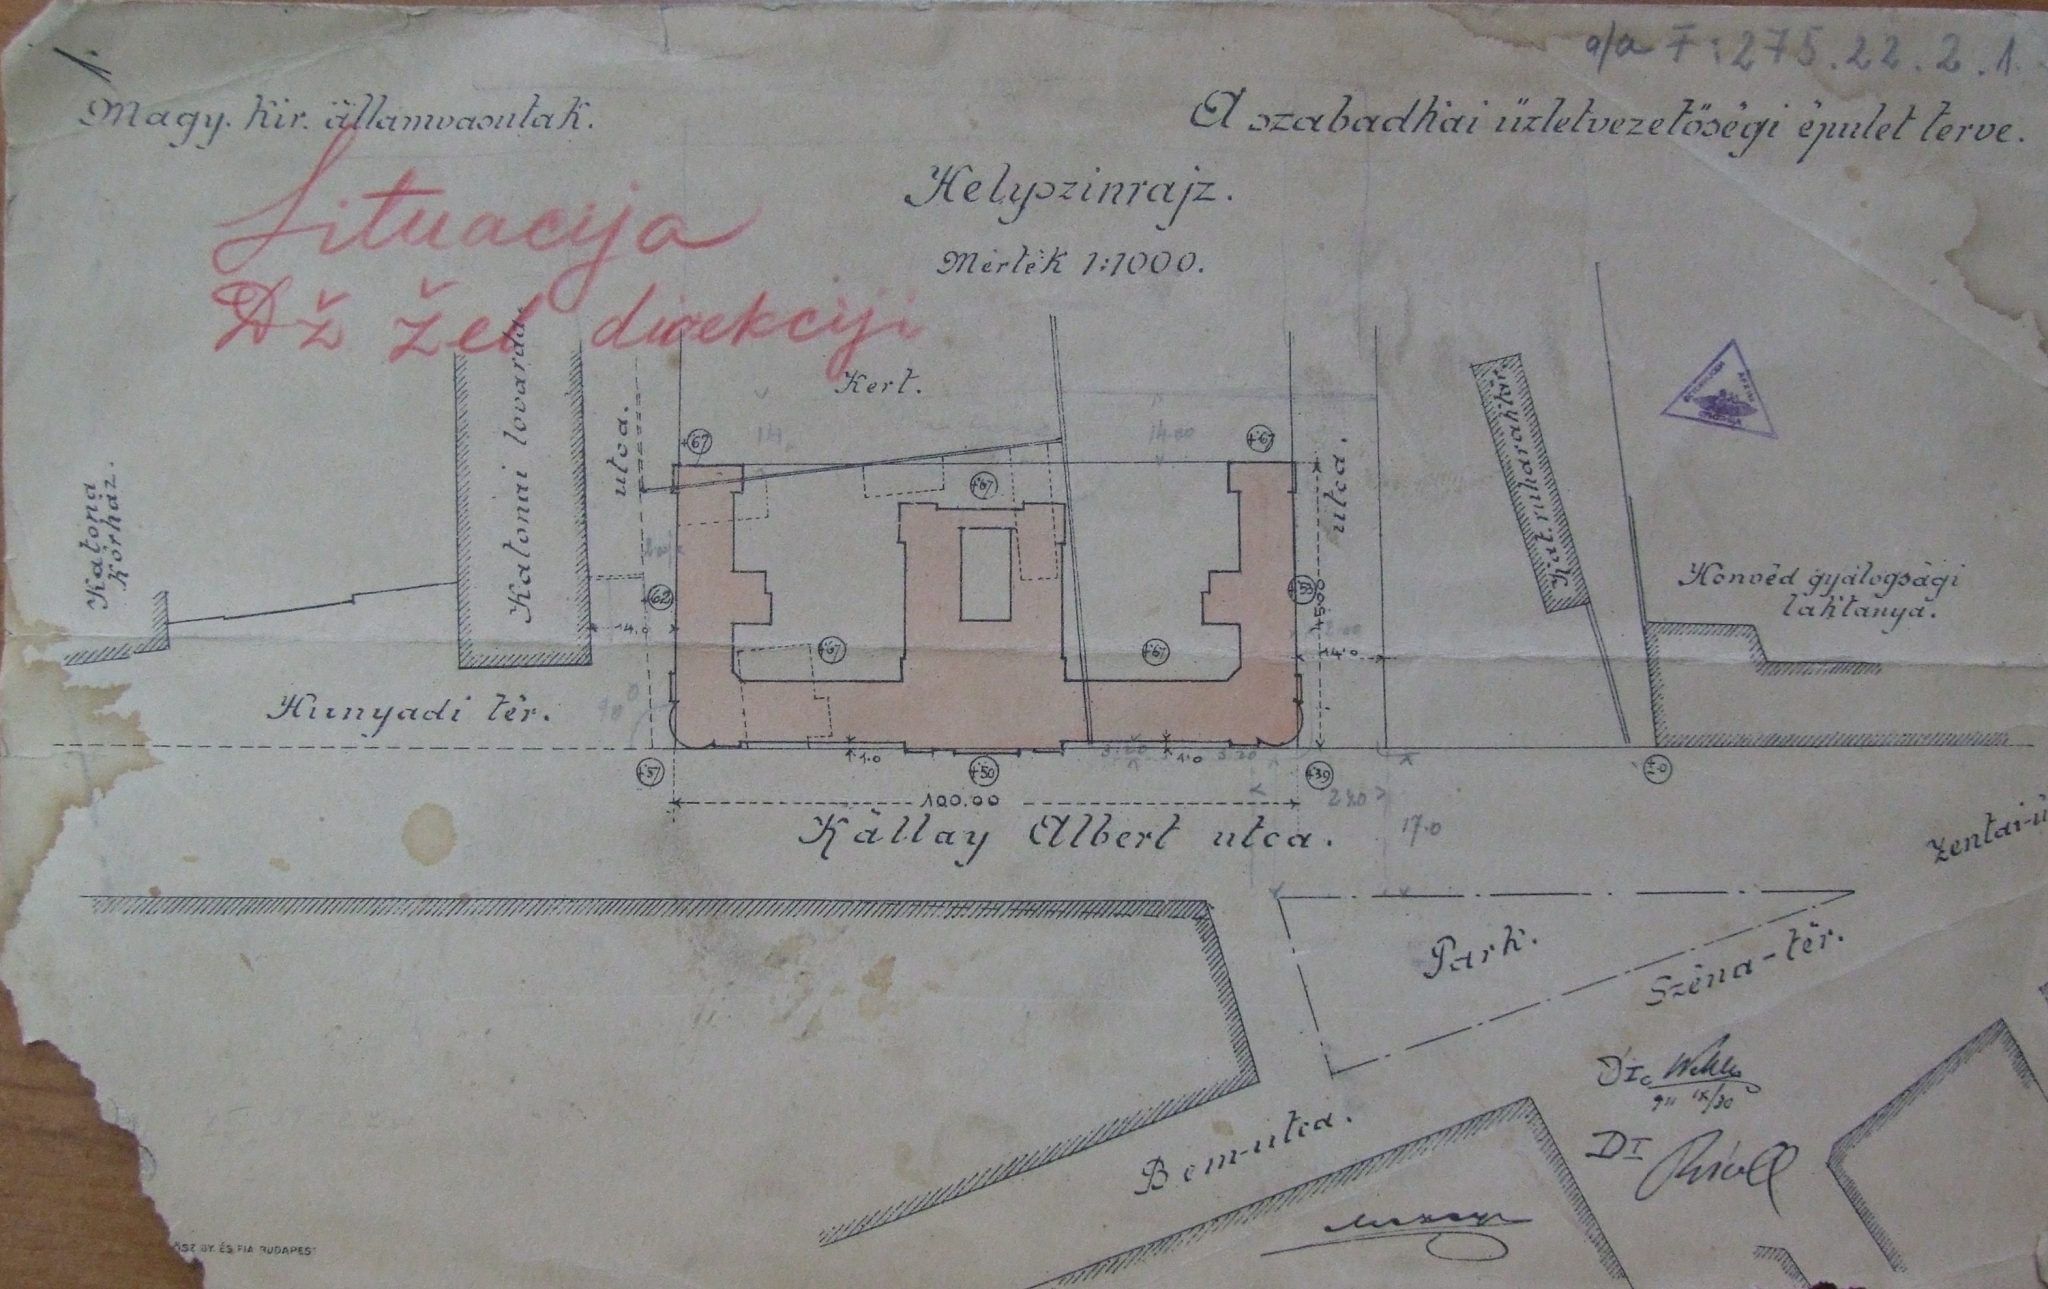 1.
a/a F: 275.22.2.1.
Magy. kir. államvasutak.
A szabadkai üzletvezetőségi épület terve.
Helyszinrajz.
Mérték 1:1000.
Situacija
Dž žel direkciji
Kert.
Katona
kórház.
Katonai lovarda
utca.
utca.
Kat. ruharaktár
Honvéd gyalogsági
laktanya.
+67
+67
+67
14.00
+62
+53
45.00
14.0
+67
+67
14.0
Hunyadi tér.
1.0
1.0
+57
+50
+39
±0
100.00
17.0
Kállay Albert utca.
Zentai-ú
Park.
Széna-tér.
Bem-utca.
DI
IX/30
DI
ŐSZ GY. ÉS FIA BUDAPEST